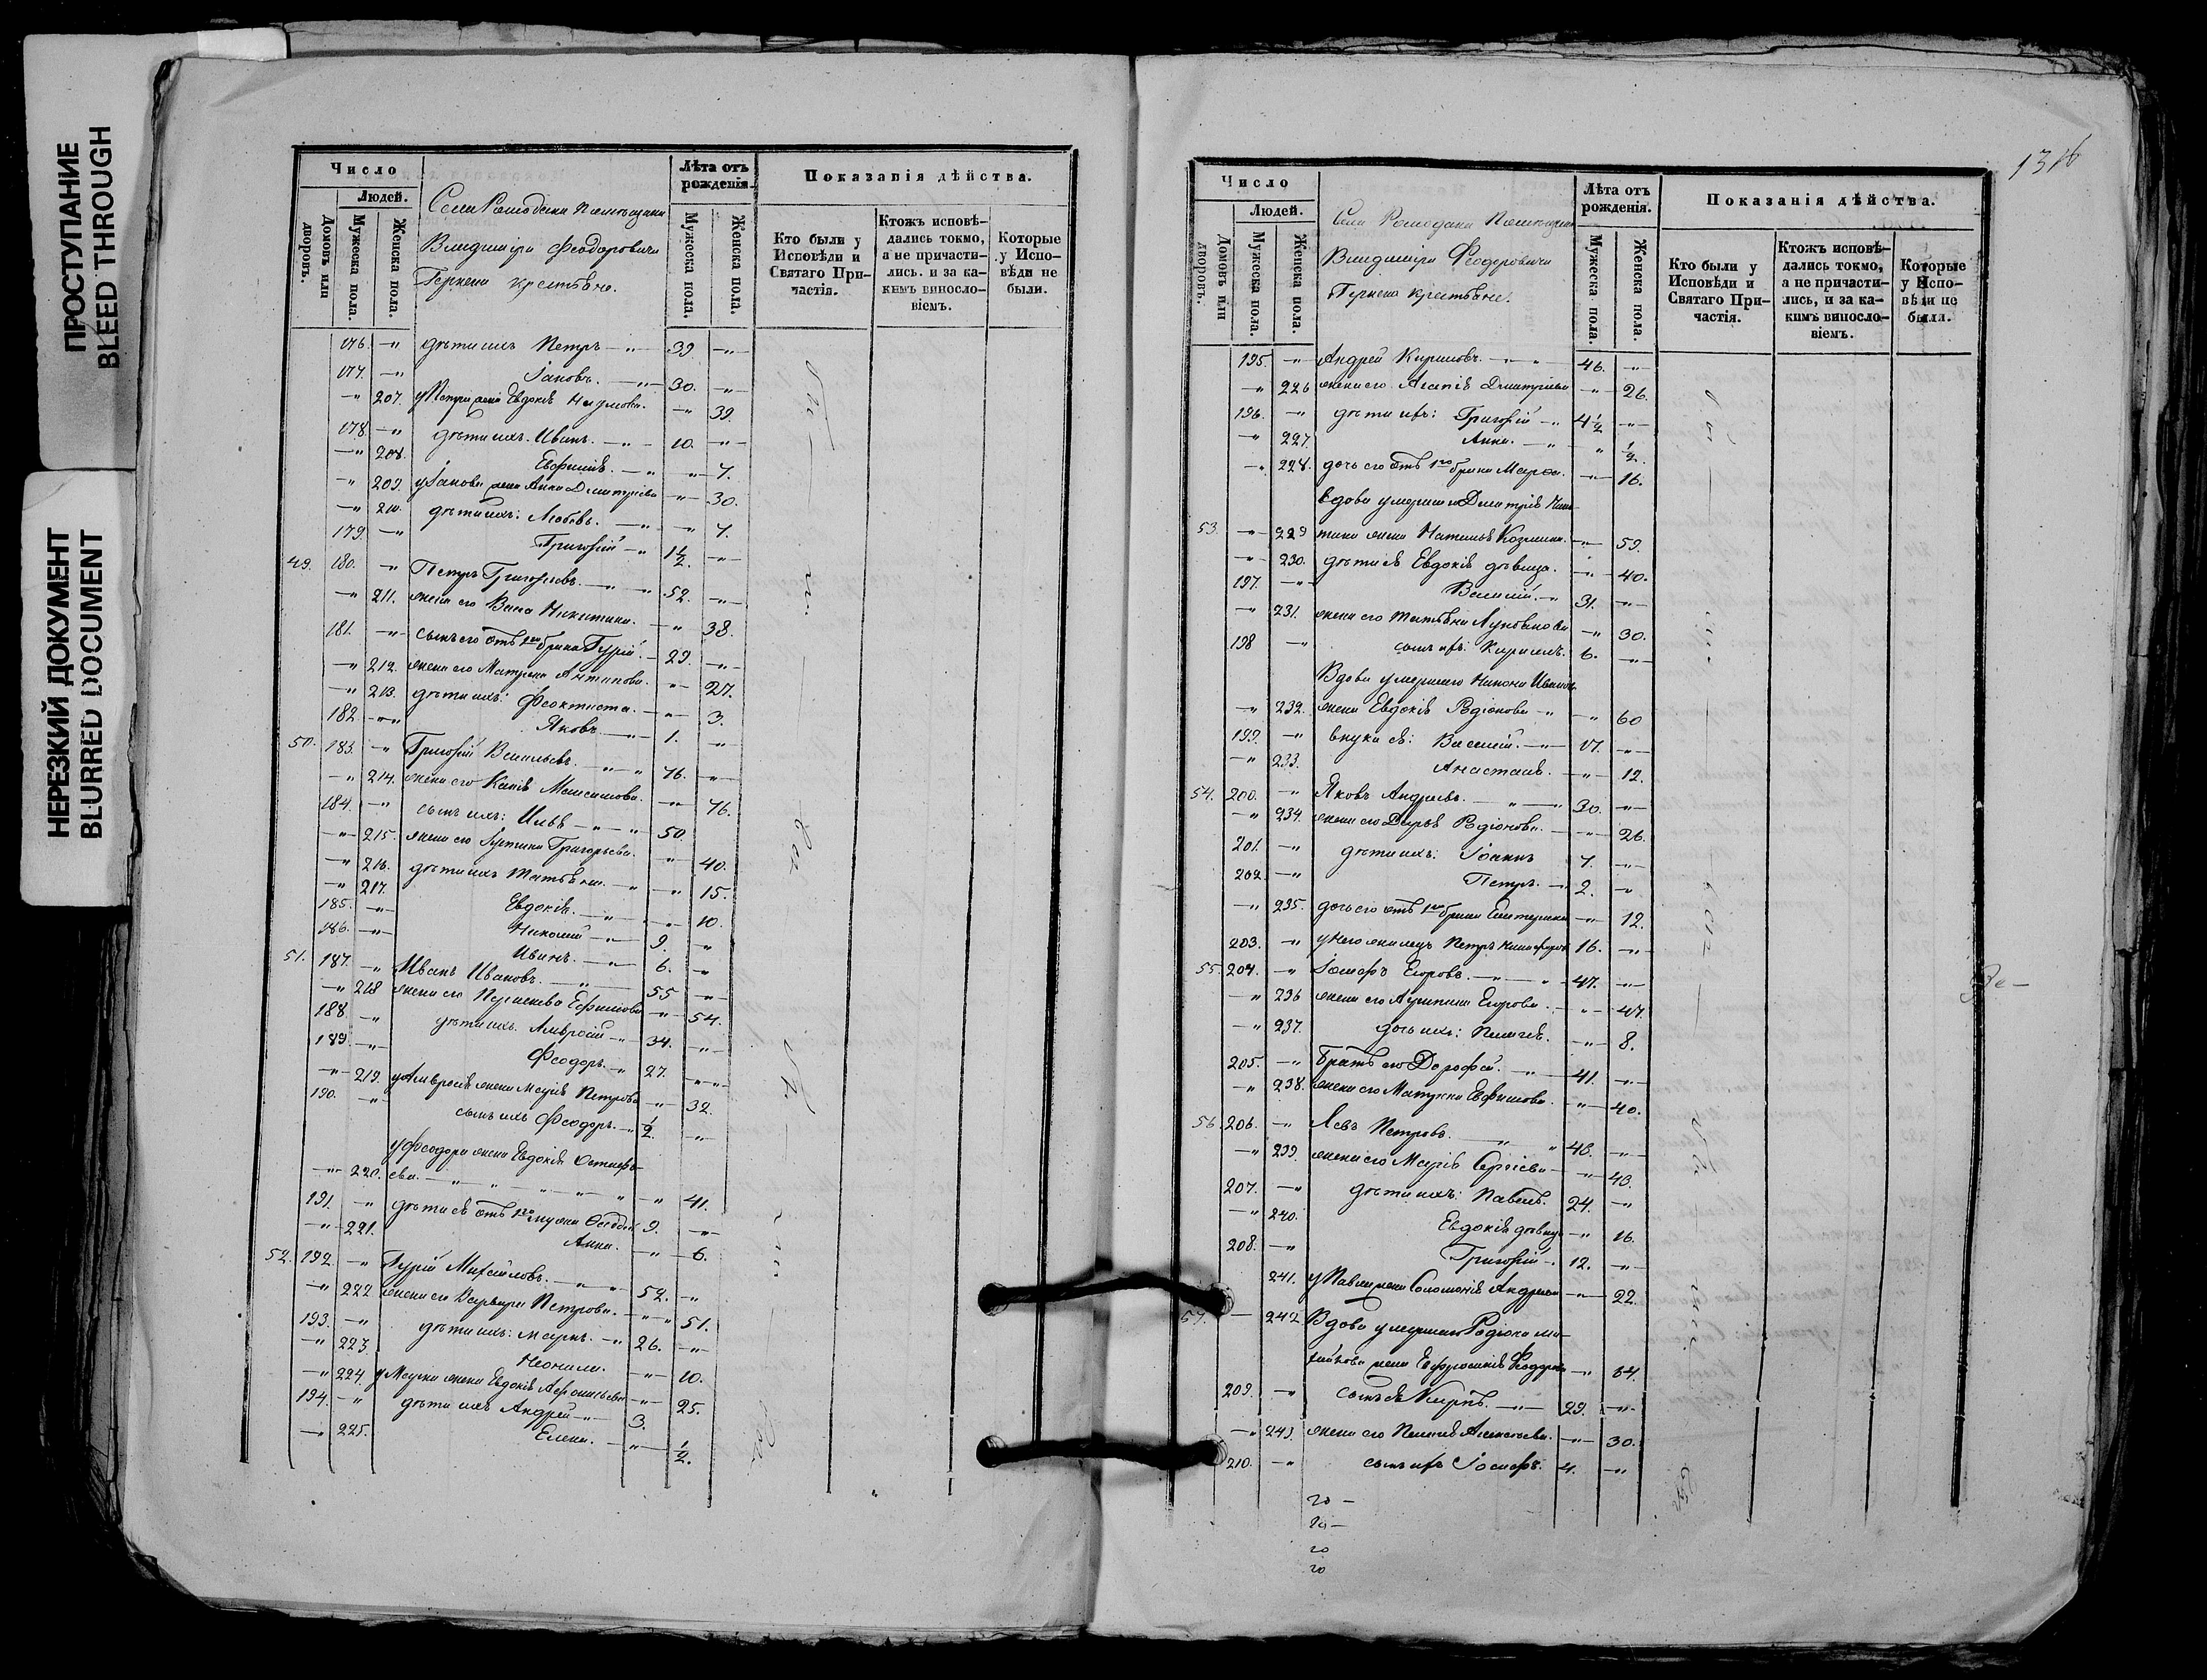 ПРОСТУПАНИЕ
BLEED THROUGH
НЕРЕЗКИЙ ДОКУМЕНТ
BLURRED DOCUMENT
Число
Людей.
Домовъ или дворовъ.
Мужеска пола.
Женска пола.
Села Ромодана Помѣщика
Владиміра Феодоровича
крестьяне.
Лѣта отъ рожденія.
Мужеска пола.
Женска пола.
Показанія дѣйства.
Кто были у Исповѣди и Святаго Причастія.
Ктожъ исповѣдались токмо, а не причастились. и за какимъ винословіемъ.
Которые у Исповѣди не были.
176. дѣти ихъ Петръ 39
177. Іаковъ. 30.
207. у Петра жена Евдокія Наумова. 39.
178. дѣти ихъ. Иванъ. 10.
208. Евфимія. 7.
209. у Іакова жена Анна Дмитріева 30.
210. дѣти ихъ: Любовь. 7.
179. Григорій 1 1/2.
49. 180. Петръ Григорьевъ. 52.
211. жена его Васса Никитина. 38.
181. сынъ его отъ 1го брака Гурій. 29.
212. жена его Матрона Антипова. 27.
213. дѣти ихъ: Феоктиста. 3.
182. Яковъ. 1.
50. 183. Григорій Васильевъ. 76.
214. жена его Максимова. 76.
184. сынъ ихъ: Илья 50
215. жена его Іустина Григорьева. 40.
216. дѣти ихъ Татьяна. 15.
217. Евдокія. 10.
185. Николай 9.
186. Иванъ. 6.
51. 187. Иванъ Ивановъ. 55
218 жена его Параскева Ефимова 54.
188. дѣти ихъ. Амвросій 34.
189. Феодоръ. 27.
219. у Амвросія жена Марія Петрова 32.
190. сынъ ихъ Феодоръ. 1/2.
у Феодора жена Евдокія Остафь-
220. ева. 41.
191. дѣти ея отъ 1го мужа 9.
221. Анна. 6.
52. 192. Гурій Михайловъ. 52.
222 жена его Варвара Петрова. 51.
193. дѣти ихъ: Маркъ. 26.
223. Неонила. 10.
224. у Марка жена Евдокія Афанасьева 25.
194. дѣти ихъ Андрей 3.
225. Елена. 1/2.
1316
Число
Людей.
Домовъ или дворовъ.
Мужеска пола.
Женска пола.
Села Ромодана Помѣщика
Владиміра Феодоровича
крестьяне.
Лѣта отъ рожденія.
Мужеска пола.
Женска пола.
Показанія дѣйства.
Кто были у Исповѣди и Святаго Причастія.
Ктожъ исповѣдались токмо, а не причастились, и за какимъ винословіемъ.
Которые у Исповѣди не были.
195. Андрей Кириловъ. 46.
226 жена его Агапія Дмитріева 26.
196. дѣти ихъ: Григорій 4 1/2
227. Анна. 1/2.
228. дочь его отъ 1го брака Марфа. 16.
Вдова умершаго Дмитрія
53. 229 жена Наталья Козмина. 59.
230. дѣти ея Евдокія дѣвица. 40.
197. Василій. 31.
231. жена его Татьяна Лукьянова 30.
198 сынъ ихъ: Кириллъ. 6.
Вдова умершаго Никона Иванова
232. жена Евдокія Родіонова 60
199. внуки ея: Василій. 17.
233. Анастасія. 12.
54. 200. Яковъ Андреевъ. 30.
234. жена его Дарья Родіонова. 26.
201. дѣти ихъ: Іоаннъ 7.
202. Петръ. 2.
235. дочь его отъ 1го брака Екатерина 12.
203. у него жилецъ Петръ Никифоровъ 16.
55. 204. Іосифъ Егоровъ. 47.
236 жена его Агрипина Егорова. 47.
237. дочь ихъ: Пелагія. 8.
205. Братъ его Дорофей. 41.
238. жена его Матрона Евфимова. 40.
56 206. Левъ Петровъ. 48.
239. жена его Марія Сергіева 43.
207. дѣти ихъ: Павелъ. 24.
240. Евдокія дѣвица 16.
208. Григорій. 12.
241. у Павла жена Соломонія Андреева 22.
57. 242 Вдова умершаго Родіона Ми-
хайлова жена Ефросинія Феодорова 64.
209. сынъ ея Карпъ. 29.
243. жена его Пелагія 30.
210. сынъ ихъ Іосифъ. 4.